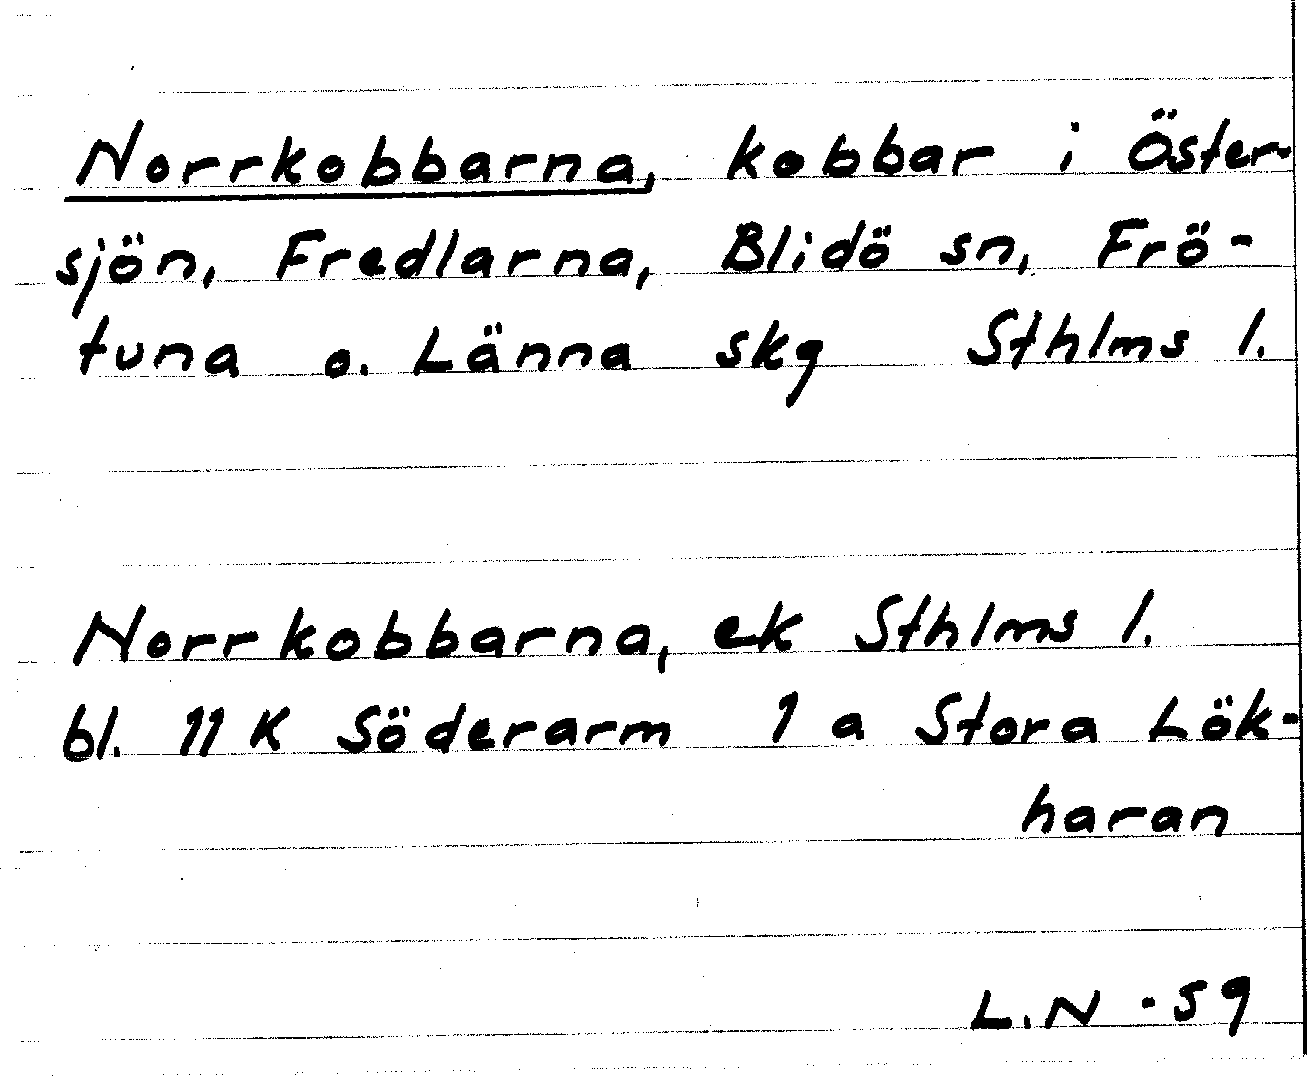 Norrkobbarna, kobbar i Öster-
sjön, Fredlarna, Blidö sn, Frö-
tuna o. Länna skg Sthlms l.
Norrkobbarna, ek Sthlms l.
bl. 11 K Söderarm 1 a Stora Lök-
haran
L.N -59